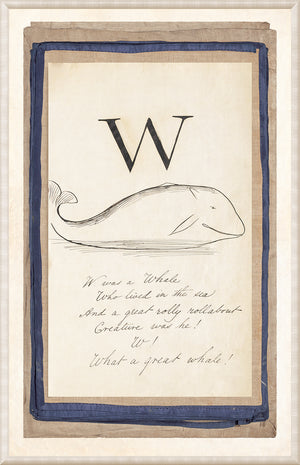 W
W was a Whale
Who lived in the sea
And a great rolly rollabout
Creature was he!
W!
What a great whale!